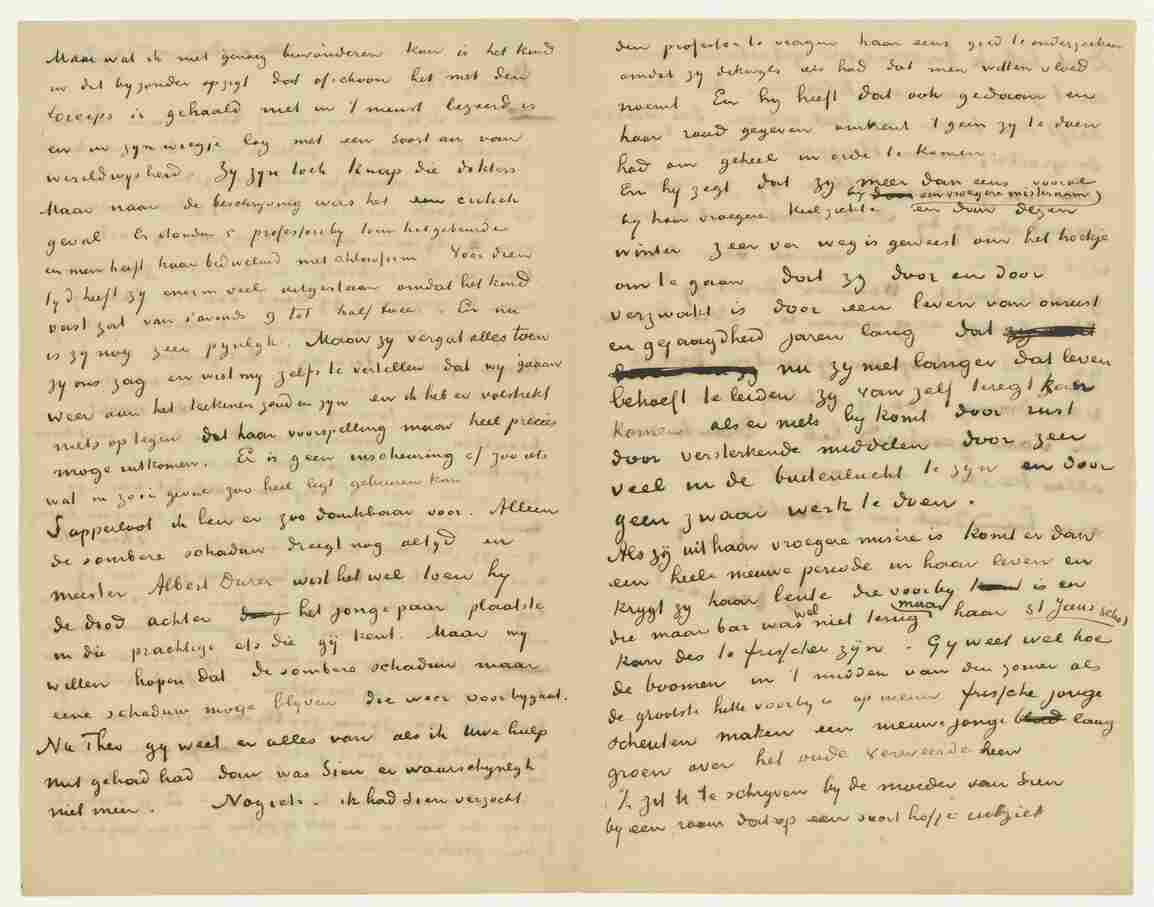 Maar wat ik niet genoeg bewonderen kan is het kind
in dit byzonder opzigt dat ofschoon het met den
forceps is gehaald niet in 't minst bezeerd is
en in zyn wiegje lag met een soort air van
wereldwysheid. Zy zyn toch knap die dokters
Maar naar de beschryving was het een critiek
geval. Er stonden 5 professors by toen het gebeurde
en men heeft haar bedwelmd met chloroform. Vóór dien
tyd heeft zy enorm veel uitgestaan omdat het kind
vast zat van s'avonds 9 tot half twee. En nu
is zy nog zeer pynlyk. Maar zy vergat alles toen
zy ons zag en wist my zelfs te vertellen dat wy gaauw
weer aan het teekenen zouden zyn en ik heb er volstrekt
niets op tegen dat haar voorspelling maar heel precies
moge uitkomen. Er is geen inscheuring of zoo iets
wat in zoo'n geval zoo heel ligt gebeuren kan
Sapperloot ik ben er zoo dankbaar voor. Alleen
de sombere schaduw dreigt nog altyd en
meester Albert Durer wist het wel toen hy
de dood achter het jonge paar plaatste
in die prachtige ets die gij kent. Maar wy
willen hopen dat de sombere schaduw maar
eene schaduw moge blyven die weer voorbygaat.
Nu Theo gy weet er alles van als ik Uwe hulp
niet gehad had dan was Sien er waarschynlyk
niet meer. Nog iets. ik had Sien verzocht
den professor te vragen haar eens goed te onderzoeken
omdat zy dikwyls iets had dat men witten vloed
noemt En hy heeft dat ook gedaan en
haar raad gegeven omtrent 't geen zy te doen
had om geheel in orde te komen.
En hy zegt dat zy meer dan eens vooral
by een vroegere miskraam)
by haar vroegere keelziekte en dan dezen
winter zeer ver weg is geweest om het hoekje
om te gaan dat zy door en door
verzwakt is door een leven van onrust
en gejaagdheid jaren lang dat
nu zy niet langer dat leven
behoeft te leiden zy van zelf teregt kan
komen als er niets by komt door rust
door versterkende middelen door zeer
veel in de buitenlucht te zyn en door
geen zwaar werk te doen.
Als zij uit haar vroegere misère is komt er dan
een heele nieuwe periode in haar leven en
krygt zy haar lente die voorby is en
die maar bar was wel niet terug maar haar St Jans schot
kan des te frisscher zijn. Gy weet wel hoe
de boomen in 't midden van den zomer als
de grootste hitte voorby is op nieuw frissche jonge
scheuten maken een nieuwe jonge laag
groen over het oude verweerde heen
Ik zit U te schryven by de moeder van Sien
by een raam dat op een soort hofje uitziet